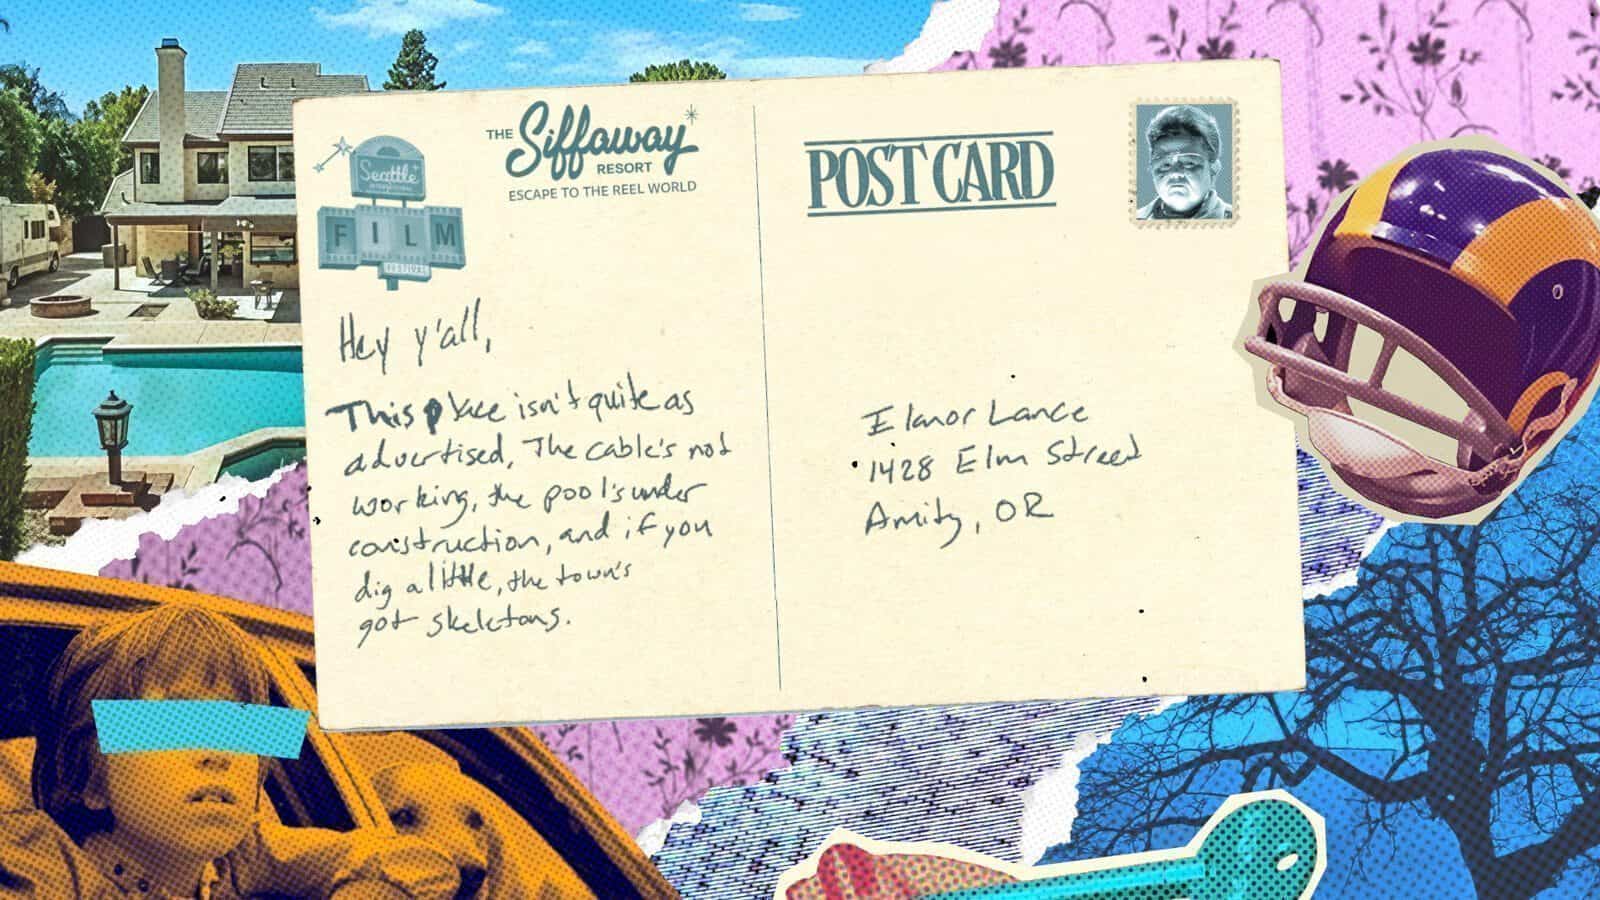 THE Siffaway
RESORT
ESCAPE TO THE REEL WORLD
Seattle
FILM
FESTIVAL
Hey y'all,
This place isn't quite as
advertised, The cable's not
working, the pool's under
construction, and if you
dig a little, the town's
got skeletons.
POST CARD
Elanor Lance
1428 Elm Street
Amity, OR